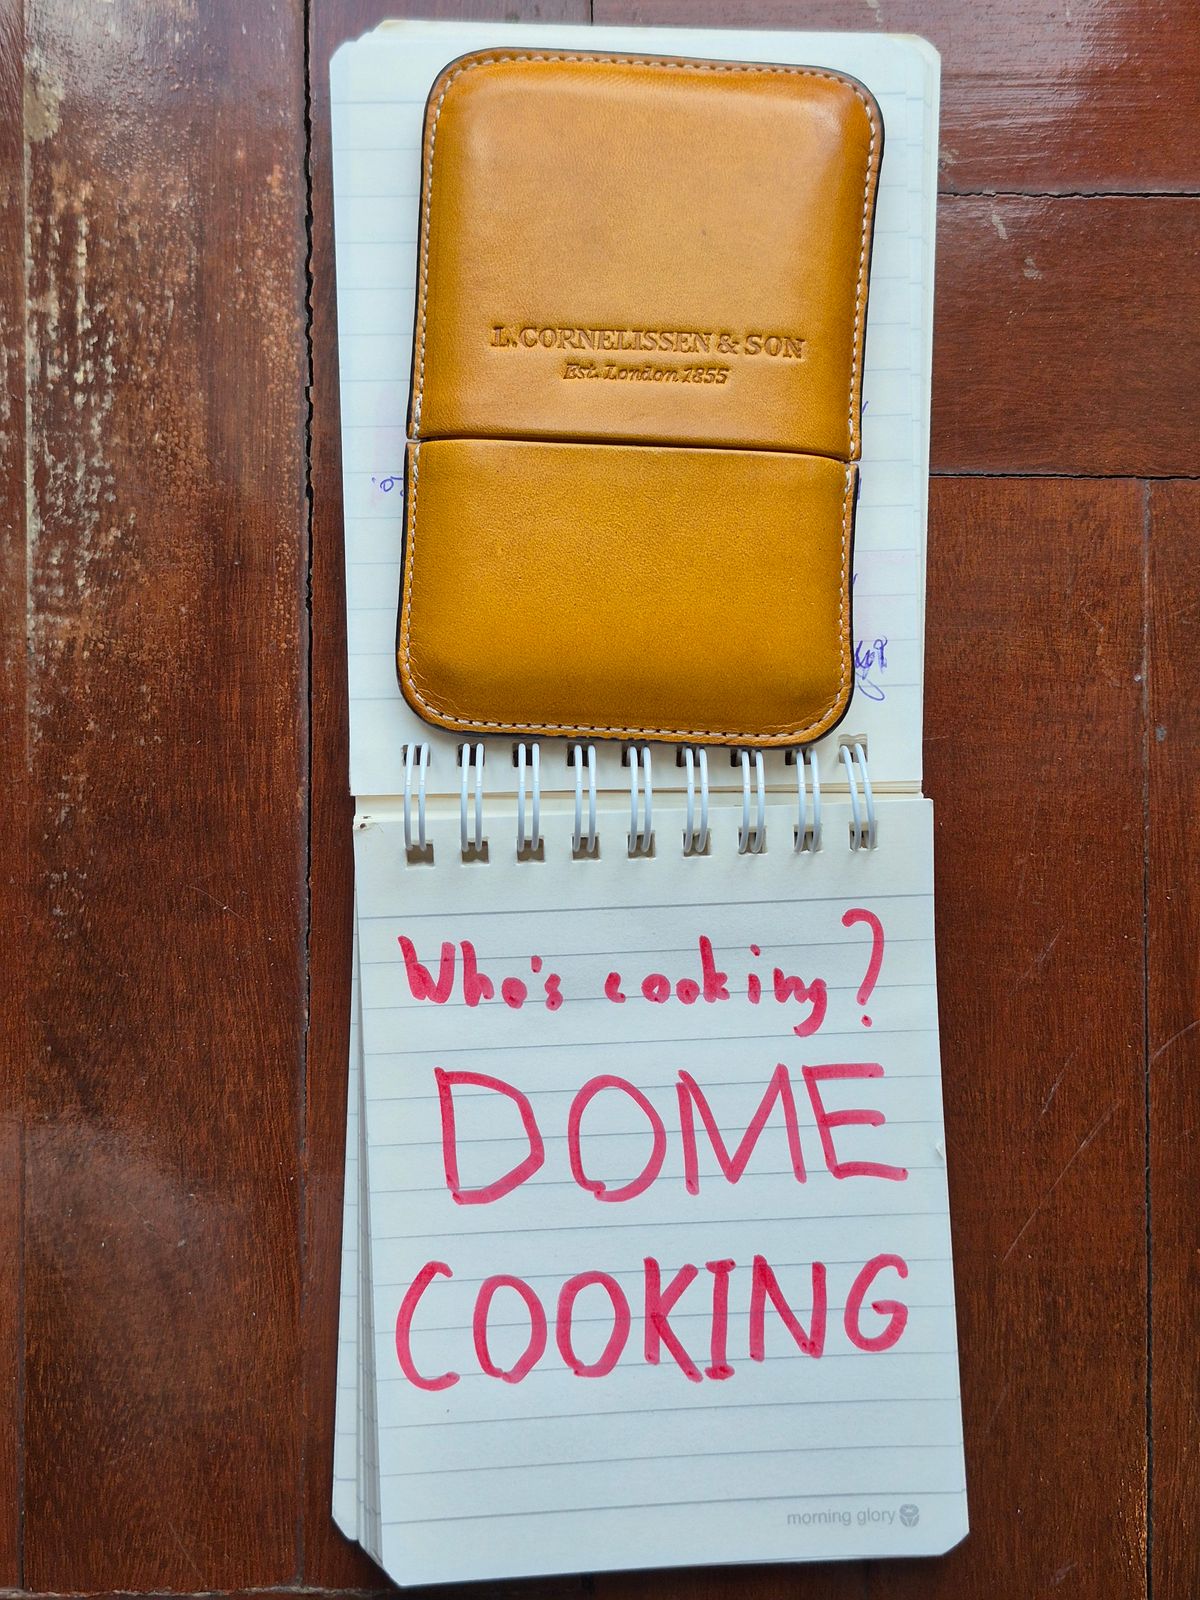 L. CORNELISSEN & SON
Est. London 1855
Who's cooking?
DOME
COOKING
morning glory